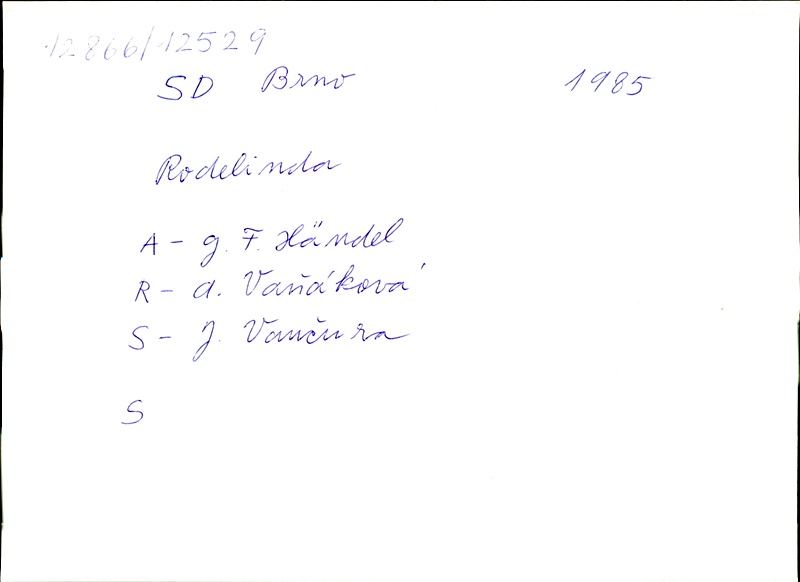 12866/12529
SD Brno 1985
Rodelinda
A - G. F. Händel
R - A. Vaňáková
S - J. Vančura
S